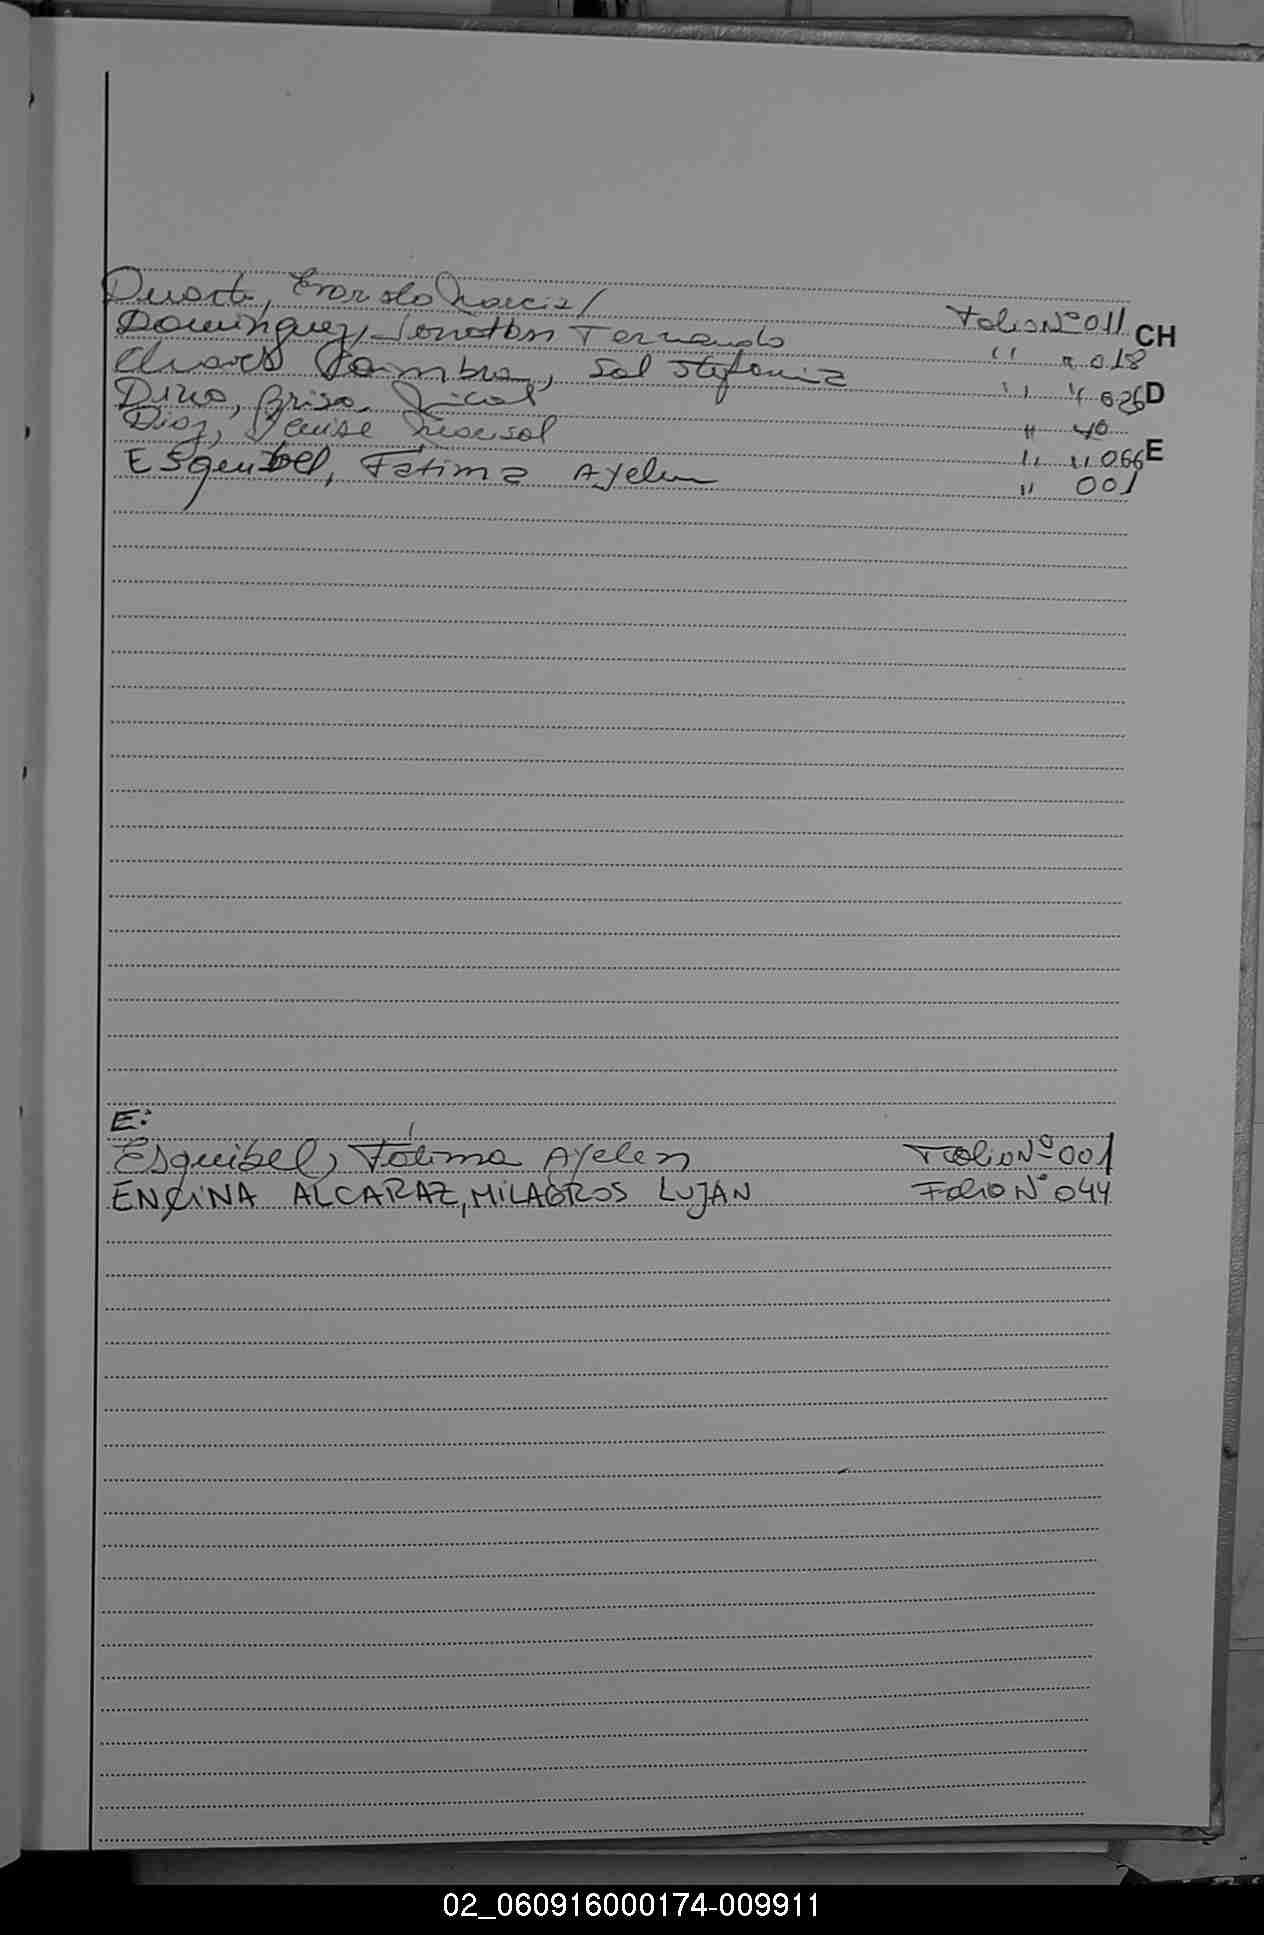 Duarte, Evaristo Marcial Folio Nº 011 CH
Dominguez, Jonathan Fernando " " 018
Chaves Gambra, Sol Stefania " " 026 D
Dizo, Brisa Nicol " 40
Diaz, Denise Marisol " " 066 E
Esquibel, Fatima Ayelen " 001
E:
Esquibel, Fátima Ayelen Folio Nº 001
ENCINA ALCARAZ, MILAGROS LUJAN Folio Nº 044
02_060916000174-009911